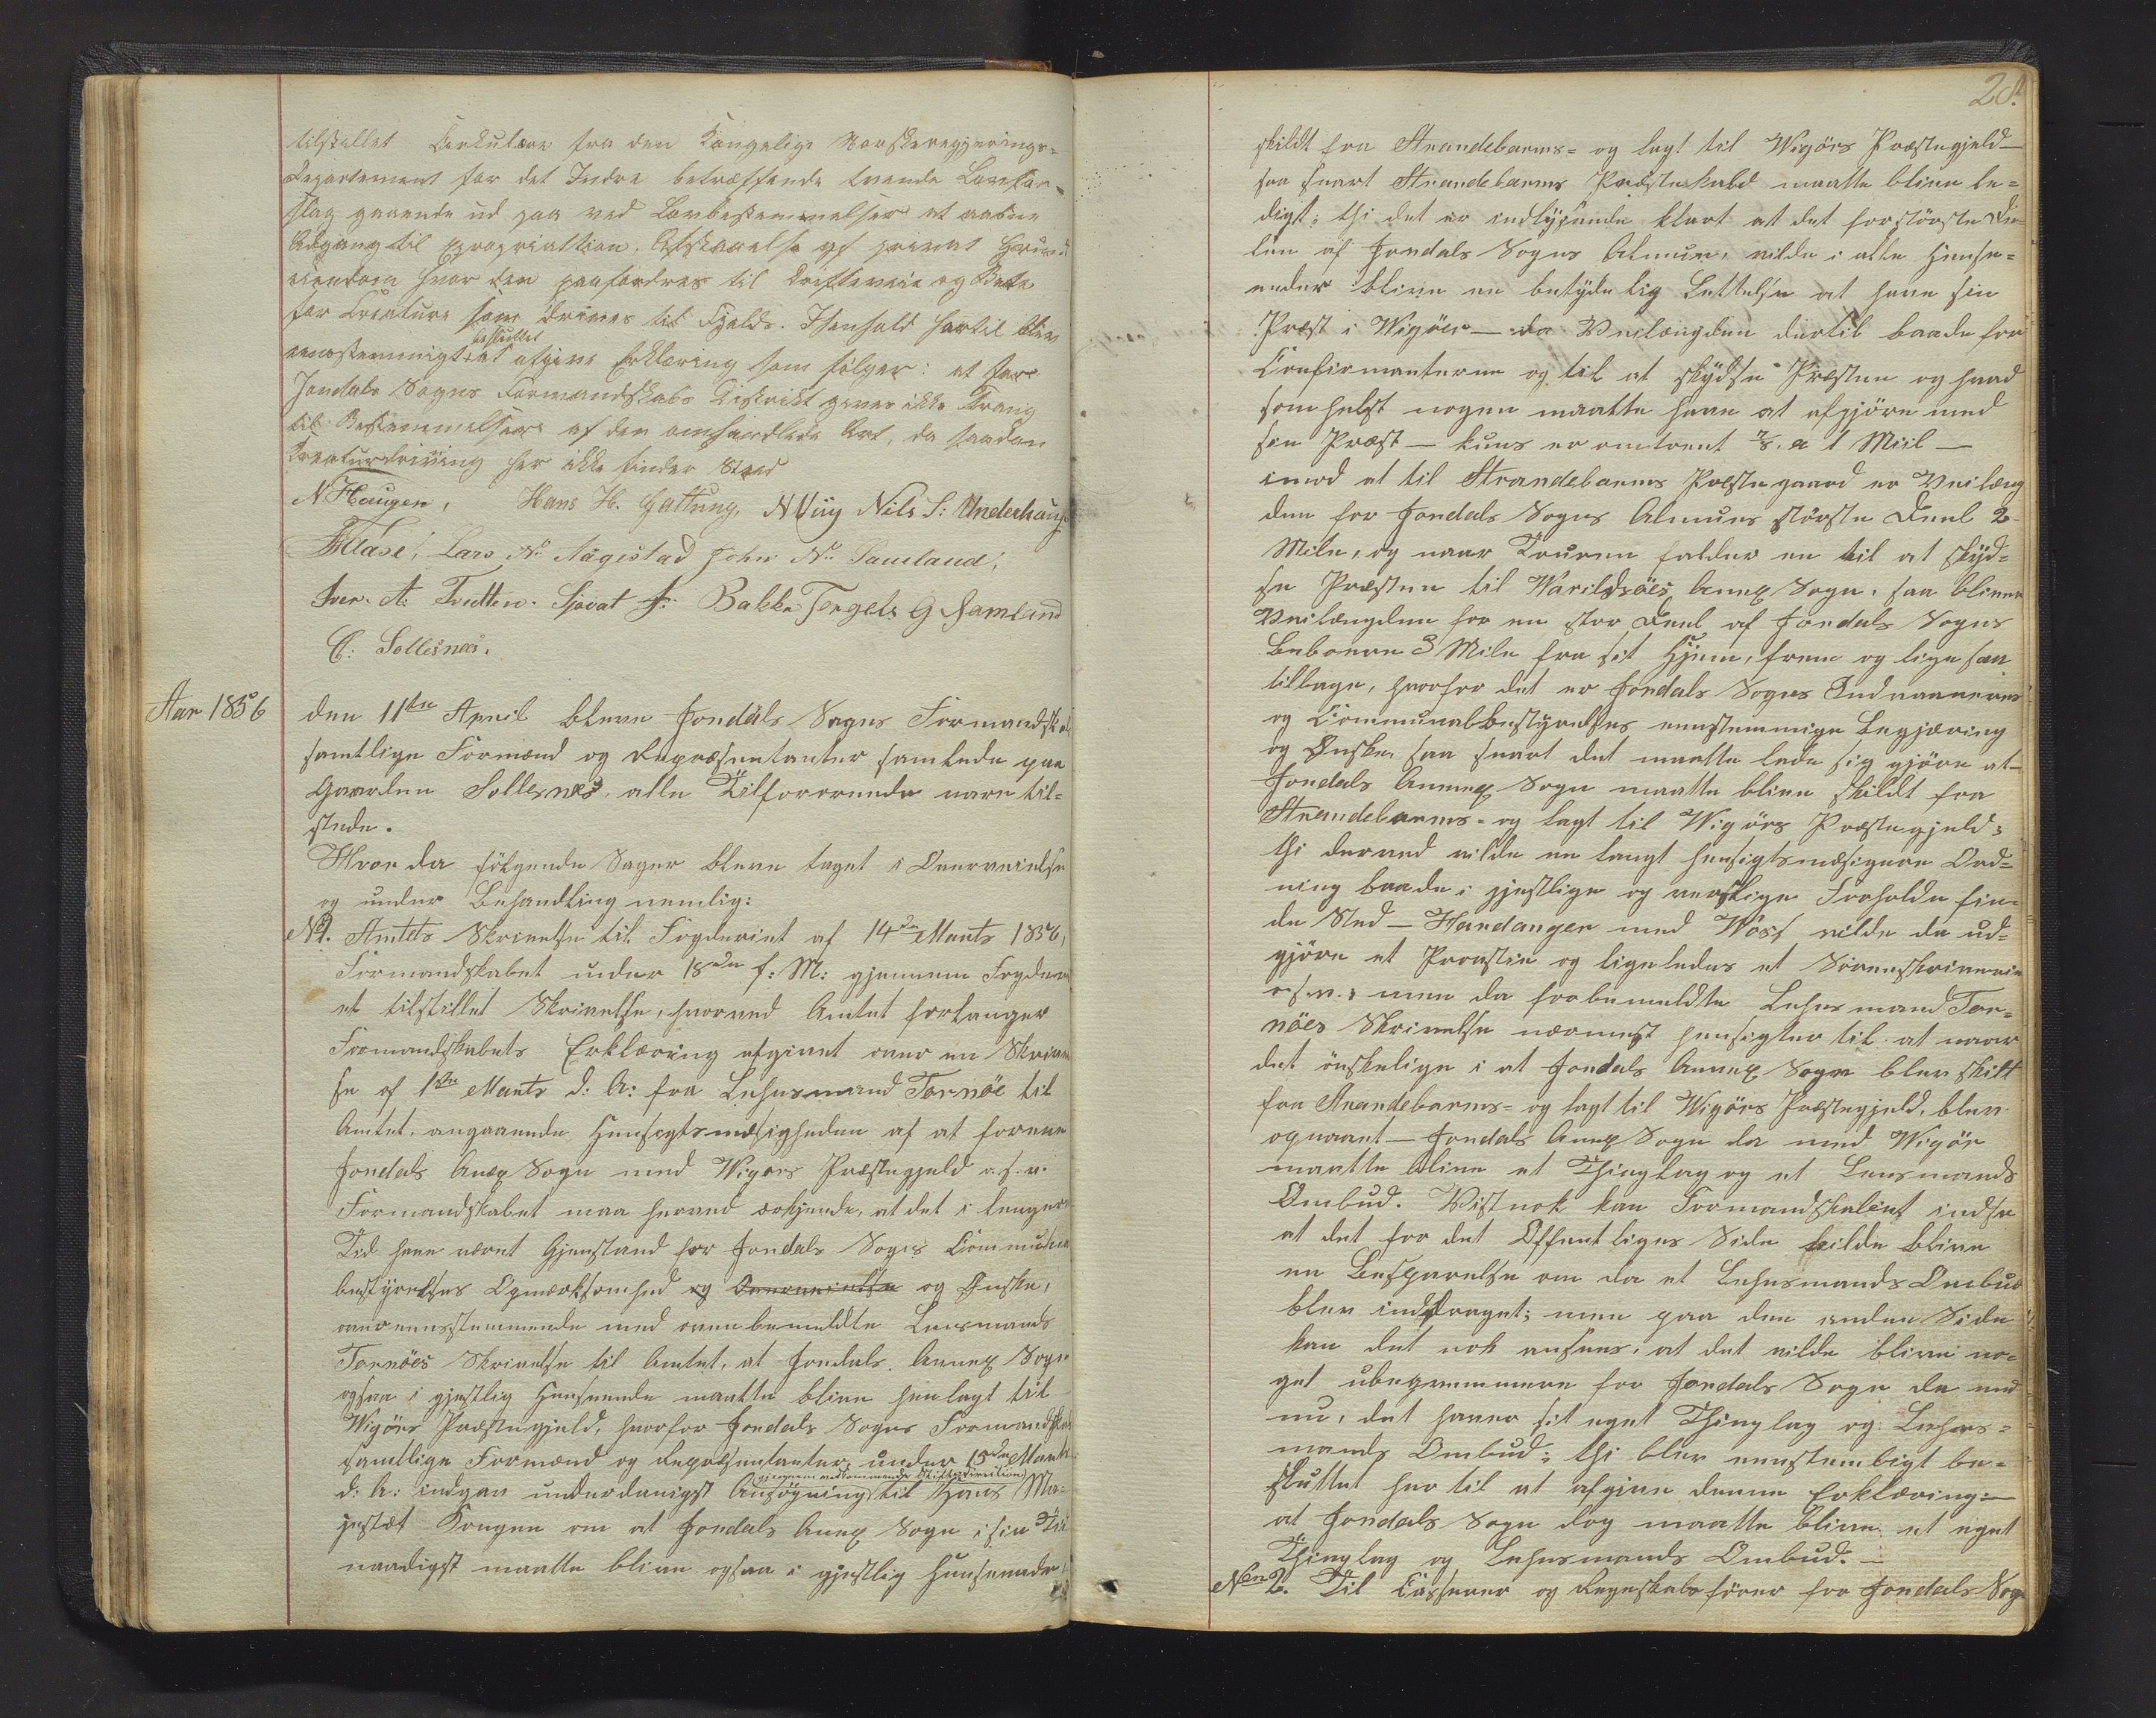 tilstillet Cirkulære fra den Kongelige Norskeregjerings-
Departement for det Indre betræffende tvende Lovfor-
slag gaaende ud paa ved Lovbestemmelser at aabne
Adgang til Expropriattion. Afstaaelse af privat Grund
eiendom hvor den paafordres til Driftevei og Beite
for Creature som drives til Fjelds. I Henhold hertil blev
eenstemmigt besluttet at afgive Erklæring som følger: at for
Jondals Sogns Formandskabs Distrikt gives ikke Trang
til Bestemmelser af den omhandlede Art, da saadan
Kreaturdrivning her ikke finder Sted
N Haugen, Hans H. Gattung, N Viig Nils S: Underhaug
Lars N. Aagestad John N. Samland,
Iver A: Tvetten. Sjovat J: Bakke Torgels G Samland
C: Sollesnæs.
Aar 1856
den 11te April bleve Jondals Sogns Formandskab
samtlige Formænd og Repræsentanter samlede paa
Gaarden Sollesnæs, alle Tilforordnede vare til-
stede.
Hvor da følgende Sager bleve taget i Overveielse
og under Behandling nemlig:
No 1. Amtets Skrivelse til Fogderiet af 14de Marts 1856,
Formandskabet under 18de f: M: gjennem Fogderi
et tilstillet Skrivelse, hvorved Amtet forlanger
Formandskabets Erklæring afgivet over en Skrivel
se af 1ste Marts d: A: fra Lehnsmand Tornöe til
Amtet, angaaende Hensigtsmæsigheden af at forene
Jondals Anex Sogn med Wigørs Præstegjeld o.s.v.
Formandskabet maa herved erkjende, at det i længere
Tid have været Gjenstand for Jondals Sogns Commune
bestyrelses Opmærksomhed og Overveielse og Ønske,
overeensstemmende med ovenbemeldte Lensmands
Tornöes Skrivelse til Amtet, at Jondals Annex Sogn
ogsaa i gjestlig Henseende maatte blive henlagt til
Wigörs Præstegjeld, hvorfor Jondals Sogns Formandskab
samtlige Formænd og Repræsentanter under 15de Marts
d: A: indgav underdanigst Ansögning (gjennem vedkommende Stiftsdirection) til Hans Ma-
jestæt Kongen om at Jondals Anex Sogn i sin Tid
naadigst maatte blive ogsaa i gjestlig Henseende
28.
skildt fra Strandebarms- og lagt til Wigörs Præstegjeld
saa snart Strandebarms Præstekald maatte blive le-
digt; thi det er indlysende klart at det forstörste De-
len af Jondals Sogns Almue, vilde i alle Hense-
ender blive en betydelig Lettelse at have sin
Præst i Wigöer — da Veilængden dertil baade for
Confirmanterne og til at skydse Præsten og hvad
somhelst nogen maatte have at afgjöre med
sin Præst — kuns er omtrent 7/8. a 1 Miil —
imod at til Strandebarms Præstegaard er Veilæng
den for Jondals Sogns Almues störste Deel 2
Mile, og naar Touren falder en til at skyd-
se Præsten til Warildsöes Annex Sogn, saa bliver
Veilængden for en stor Deel af Jondals Sogns
Beboere 3 Mile fra sit Hjem, frem og ligesaa
tilbage, hvorfor det er Jondals Sogns Indvaaneres
og Communalbestyrelses eenstemmige Begjæring
og Ønske, saa snart det maatte lade sig gjöre at
Jondals Annex Sogn maatte blive skildt fra
Strandebarms- og lagt til Wigörs Præstegjeld;
thi derved vilde en langt hensigtsmæsigere Ord-
ning baade i gjestlige og verslige Forholde fin-
de Sted — Hardanger med Woss vilde da ud-
gjöre et Provstie og ligeledes et Sörenskriverie
o.s.v.; men da forbemeldte Lehnsmand Tor-
nöes Skrivelse nærmest hensigter til at naar
det önskelige i at Jondals Annex Sogn blev skilt
fra Strandebarms- og lagt til Wigörs Præstegjeld, blev
opnaaet — Jondals Anex Sogn da med Wigör
maatte blive et Thinglag og et Lensmands
Ombud. Vistnok kan Formandskabet indse
at det for det Offentliges Side vilde blive
en Besparelse om da et Lehnsmands Ombud
blev inddraget; men paa den anden Side
kan det nok ansees, at det vilde blive no-
get ubeqvemmere for Jondals Sogn da end
nu, det haver sit eget Thinglag og Lehns-
mands Ombud; thi blev eenstembigt be-
sluttet her til at afgive denne Erklæring:
at Jondals Sogn dog maatte blive et eget
Thinglag og Lehnsmands Ombud. —
No 2. Til Casserer og Regnskabsförer for Jondals Sog